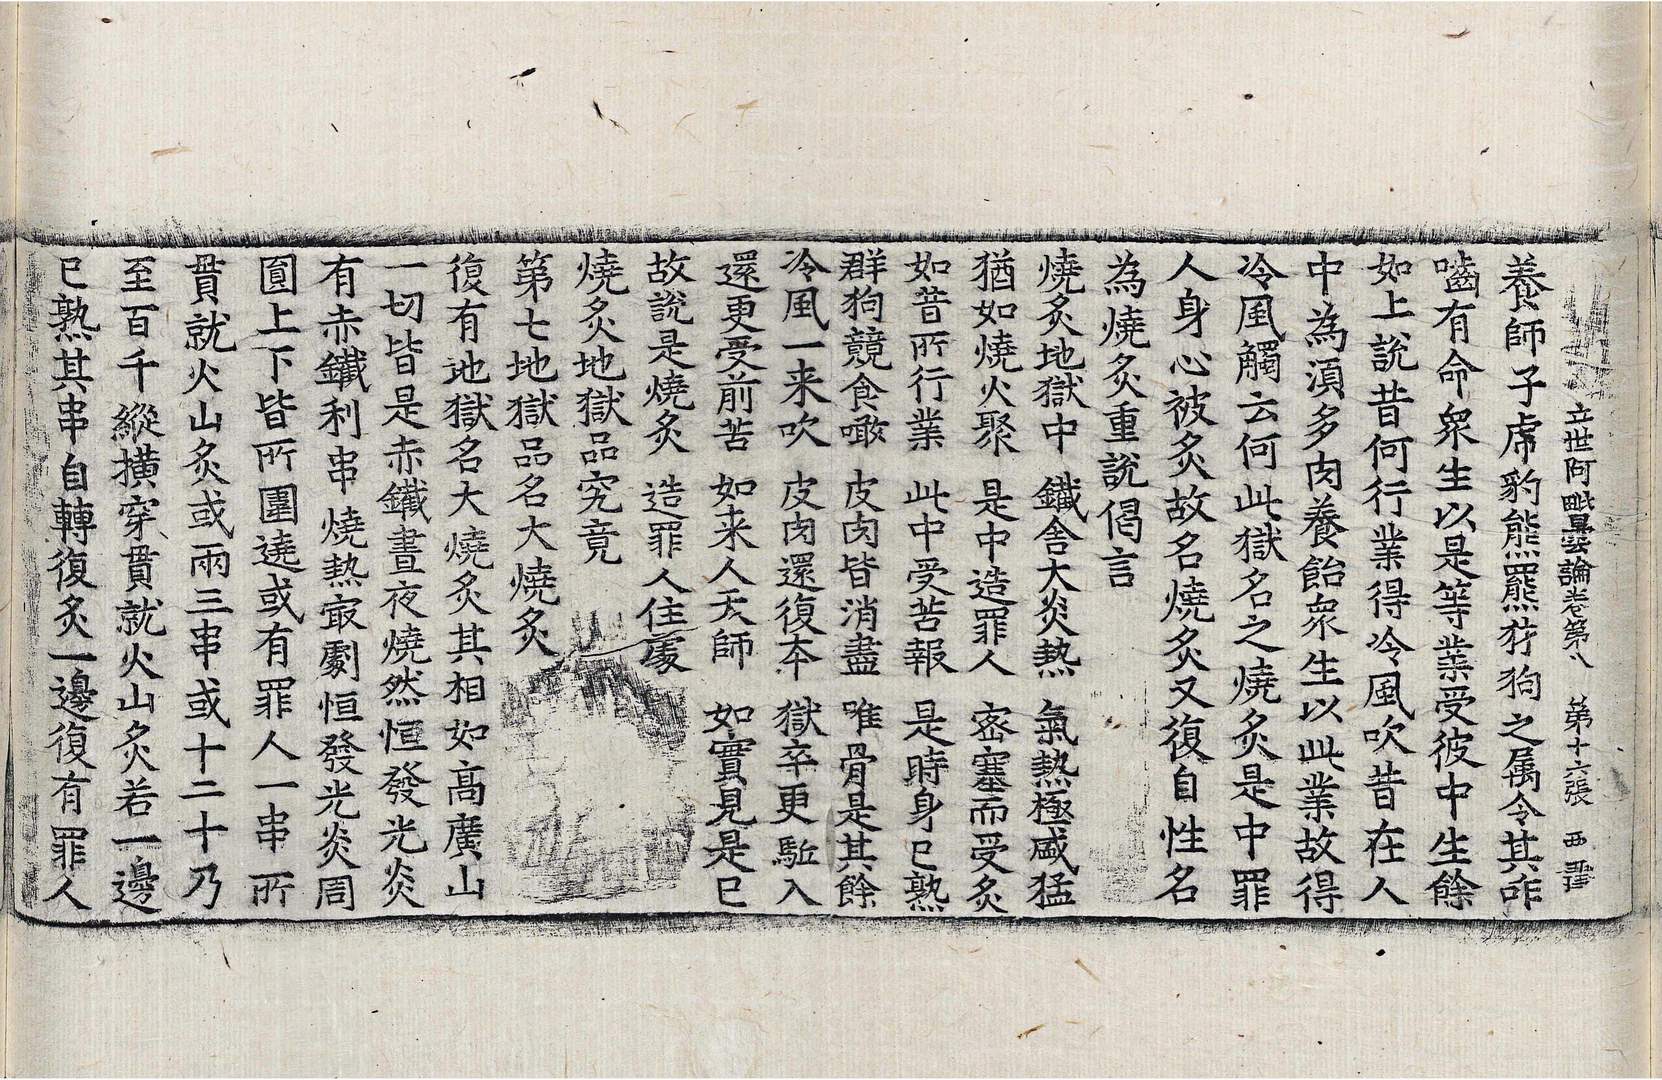 立世阿毗曇論卷第八　第十六張　西
養師子虎豹熊羆㹱狗之属令其咋
嚙有命衆生以是等業受彼中生餘
如上說昔何行業得冷風吹昔在人
中為湏多肉養飴衆生以此業故得
冷風觸云何此獄名之燒炙是中罪
人身心被炙故名燒炙又復自性名
為燒炙重說偈言
燒炙地獄中　鐵舍大炎熱　氣熱極盛猛
猶如燒火聚　是中造罪人　密塞而受炙
如昔所行業　此中受苦報　是時身已熟
群狗競食噉　皮肉皆消盡　唯骨是其餘
冷風一来吹　皮肉還復夲　獄卒更駈入
還更受前苦　如来人天師　如實見是已
故說是燒炙　造罪人住處
燒炙地獄品究竟
第七地獄品名大燒炙
復有地獄名大燒炙其相如高廣山
一切皆是赤鐵晝夜燒然恒發光炎
有赤鐵利串燒熱冣劇恒發光炎周
圓上下皆所圍遶或有罪人一串所
貫就火山炙或兩三串或十二十乃
至百千縱撗穿貫就火山炙若一邊
已熟其串自轉復炙一邊復有罪人